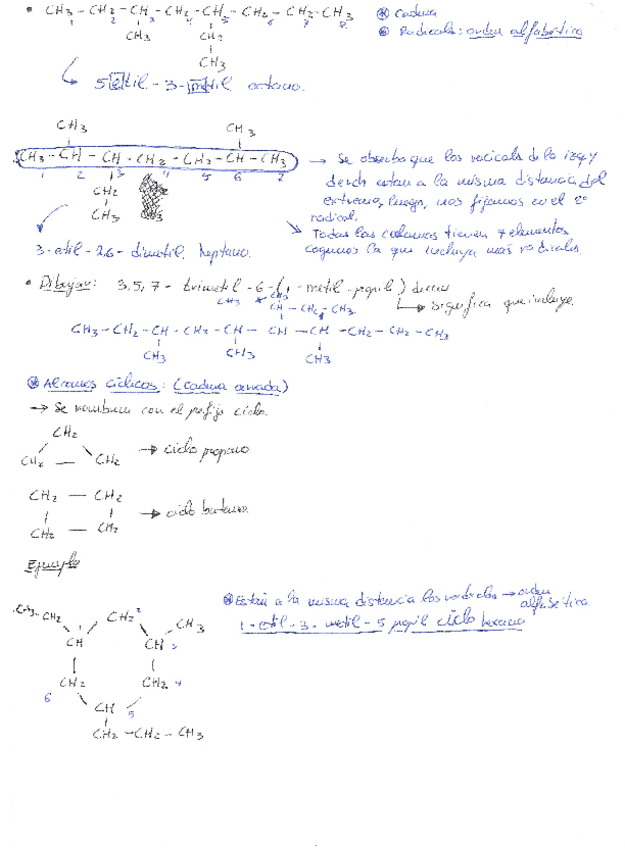 • CH3 - CH2 - CH - CH2 - CH - CH2 - CH2 - CH3
1 2 3 4 5 6 7 8
CH3 CH2
CH3
Cadena
Radicales: orden alfabético
5 etil - 3 - metil octano.
CH3 CH3
CH3 - CH - CH - CH2 - CH2 - CH - CH3
1 2 3 4 5 6 7
CH2
CH3
→ Se observa que los radicales de la izq y
derch estan a la misma distancia del
extremo, luego, nos fijamos en el 2º
radical.
Todas las cadenas tienen 7 elementos
cogemos la que incluya más radicales.
3 - etil - 2,6 - dimetil heptano.
• Dibujar: 3,5,7 - trimetil - 6 - (1 - metil - propil) decano
→ significa que incluye.
CH3 CH - CH2 - CH3
CH3 - CH2 - CH - CH2 - CH - CH - CH - CH2 - CH2 - CH3
CH3 CH3 CH3
Alcanos cíclicos: (Cadena cerrada)
→ Se nombran con el prefijo ciclo.
CH2
CH2 — CH2 → ciclo propano
CH2 — CH2
→ ciclo butano.
CH2 — CH2
Ejemplo
CH3 - CH2 CH2 2 CH3
CH 1 CH 3
CH2 6 CH2 4
CH 5
CH2 - CH2 - CH3
Están a la misma distancia los radicales → orden
alfabético
1 - etil - 3 - metil - 5 propil ciclo hexano